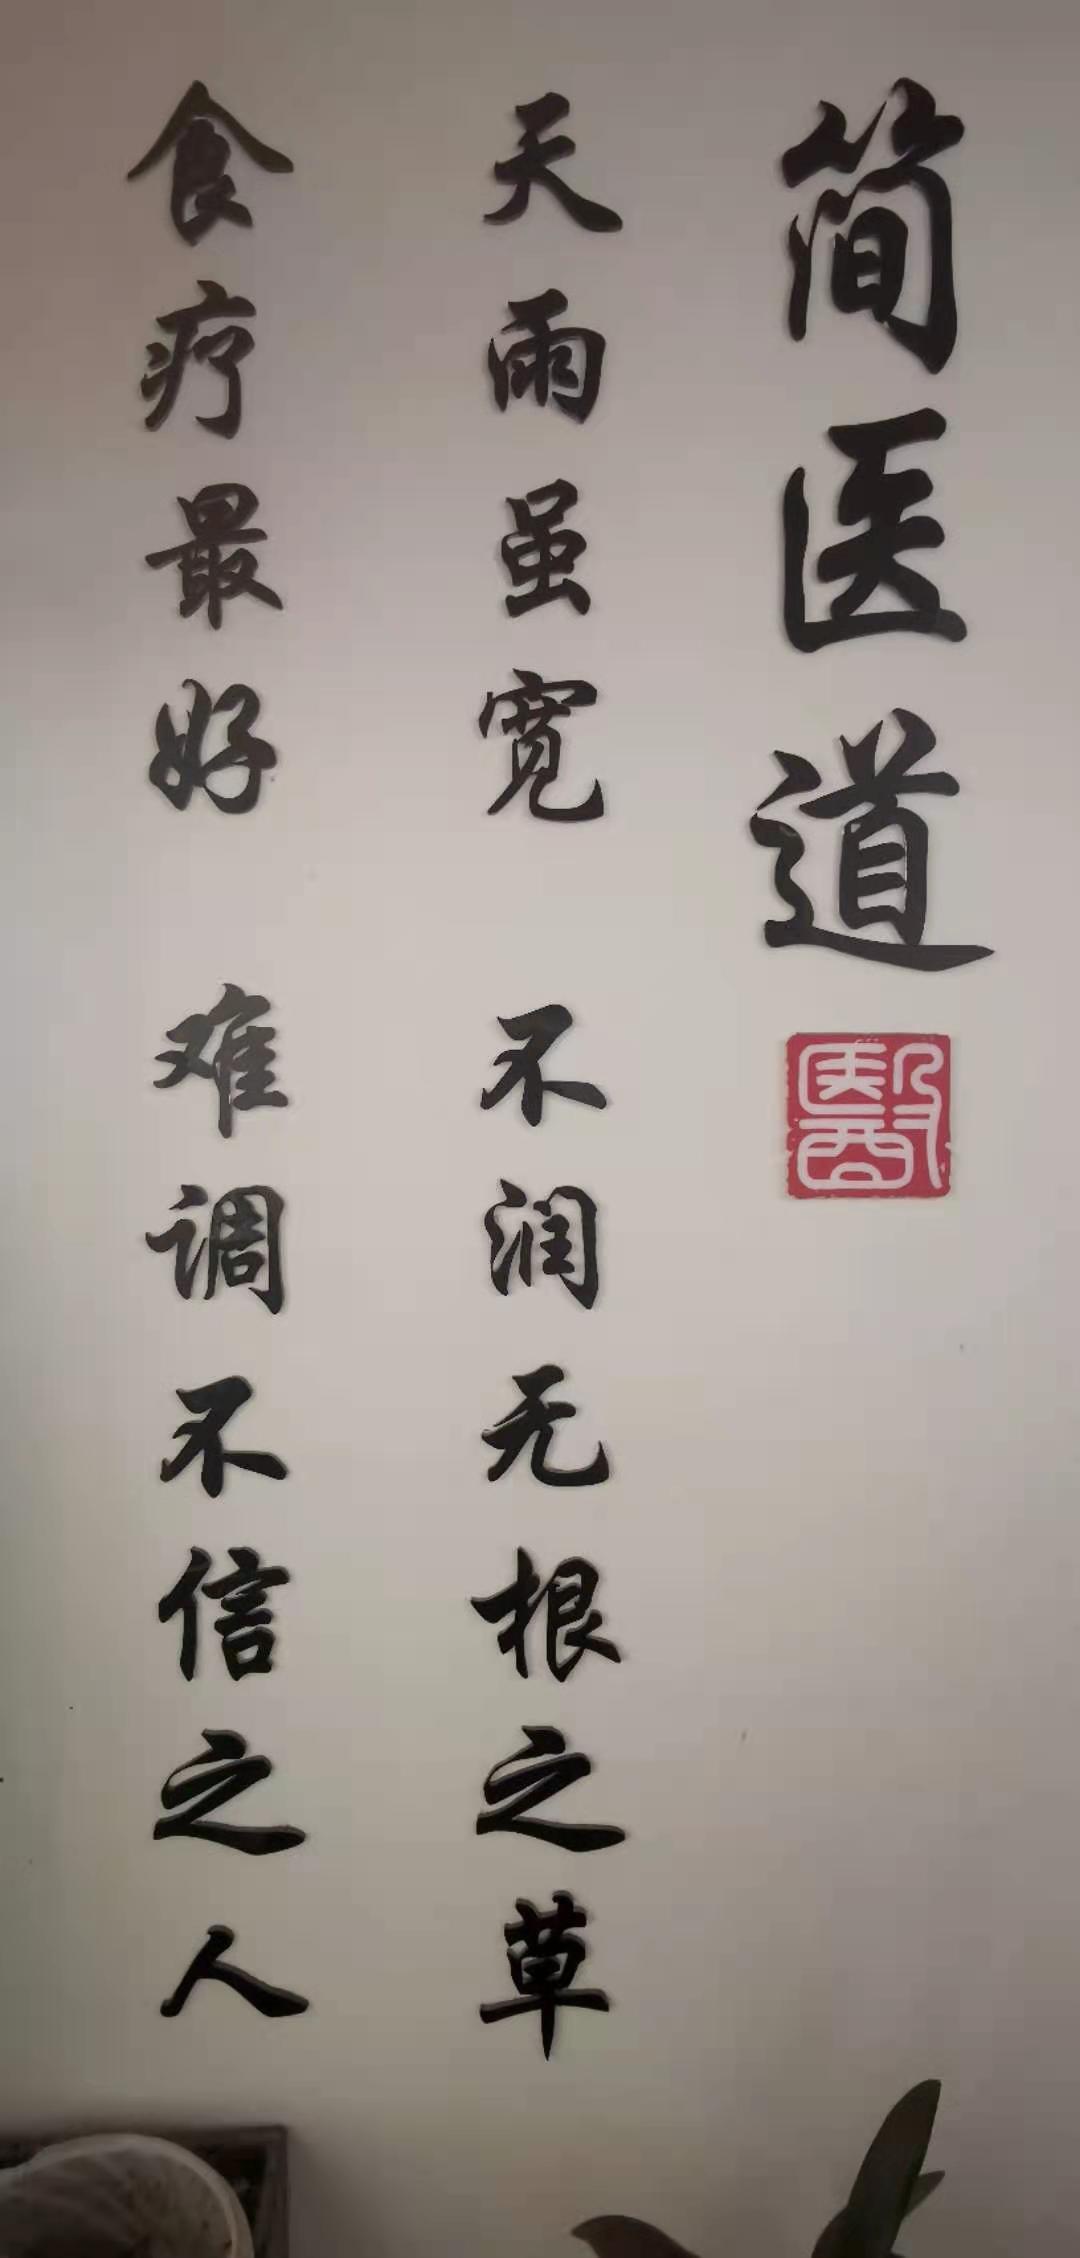 简医道
醫
天雨虽宽 不润无根之草
食疗最好 难调不信之人